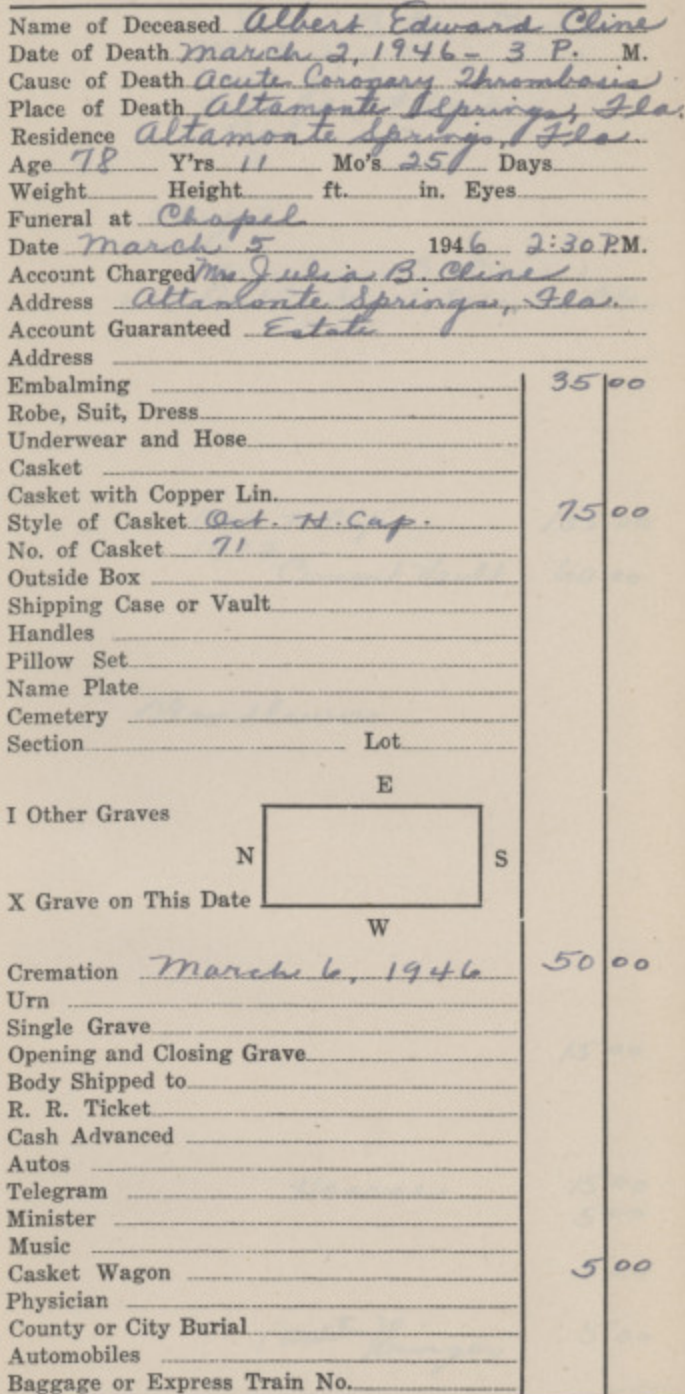 Name of Deceased Albert Edward Cline
Date of Death March 2, 1946 - 3 P. M.
Cause of Death Acute Coronary Thrombosis
Place of Death Altamonte Springs, Fla.
Residence Altamonte Springs, Fla.
Age 78 Y'rs 11 Mo's 25 Days
Weight Height ft. in. Eyes
Funeral at Chapel
Date March 5 1946 2:30 P.M.
Account Charged Mrs Julia B. Cline
Address Altamonte Springs, Fla.
Account Guaranteed Estate
Address
Embalming 35 00
Robe, Suit, Dress
Underwear and Hose
Casket
Casket with Copper Lin.
Style of Casket Oct. H. Cap. 75 00
No. of Casket 71
Outside Box
Shipping Case or Vault
Handles
Pillow Set
Name Plate
Cemetery
Section Lot
E
I Other Graves
N S
X Grave on This Date
W
Cremation March 6, 1946 50 00
Urn
Single Grave
Opening and Closing Grave
Body Shipped to
R. R. Ticket
Cash Advanced
Autos
Telegram
Minister
Music
Casket Wagon 5 00
Physician
County or City Burial
Automobiles
Baggage or Express Train No.